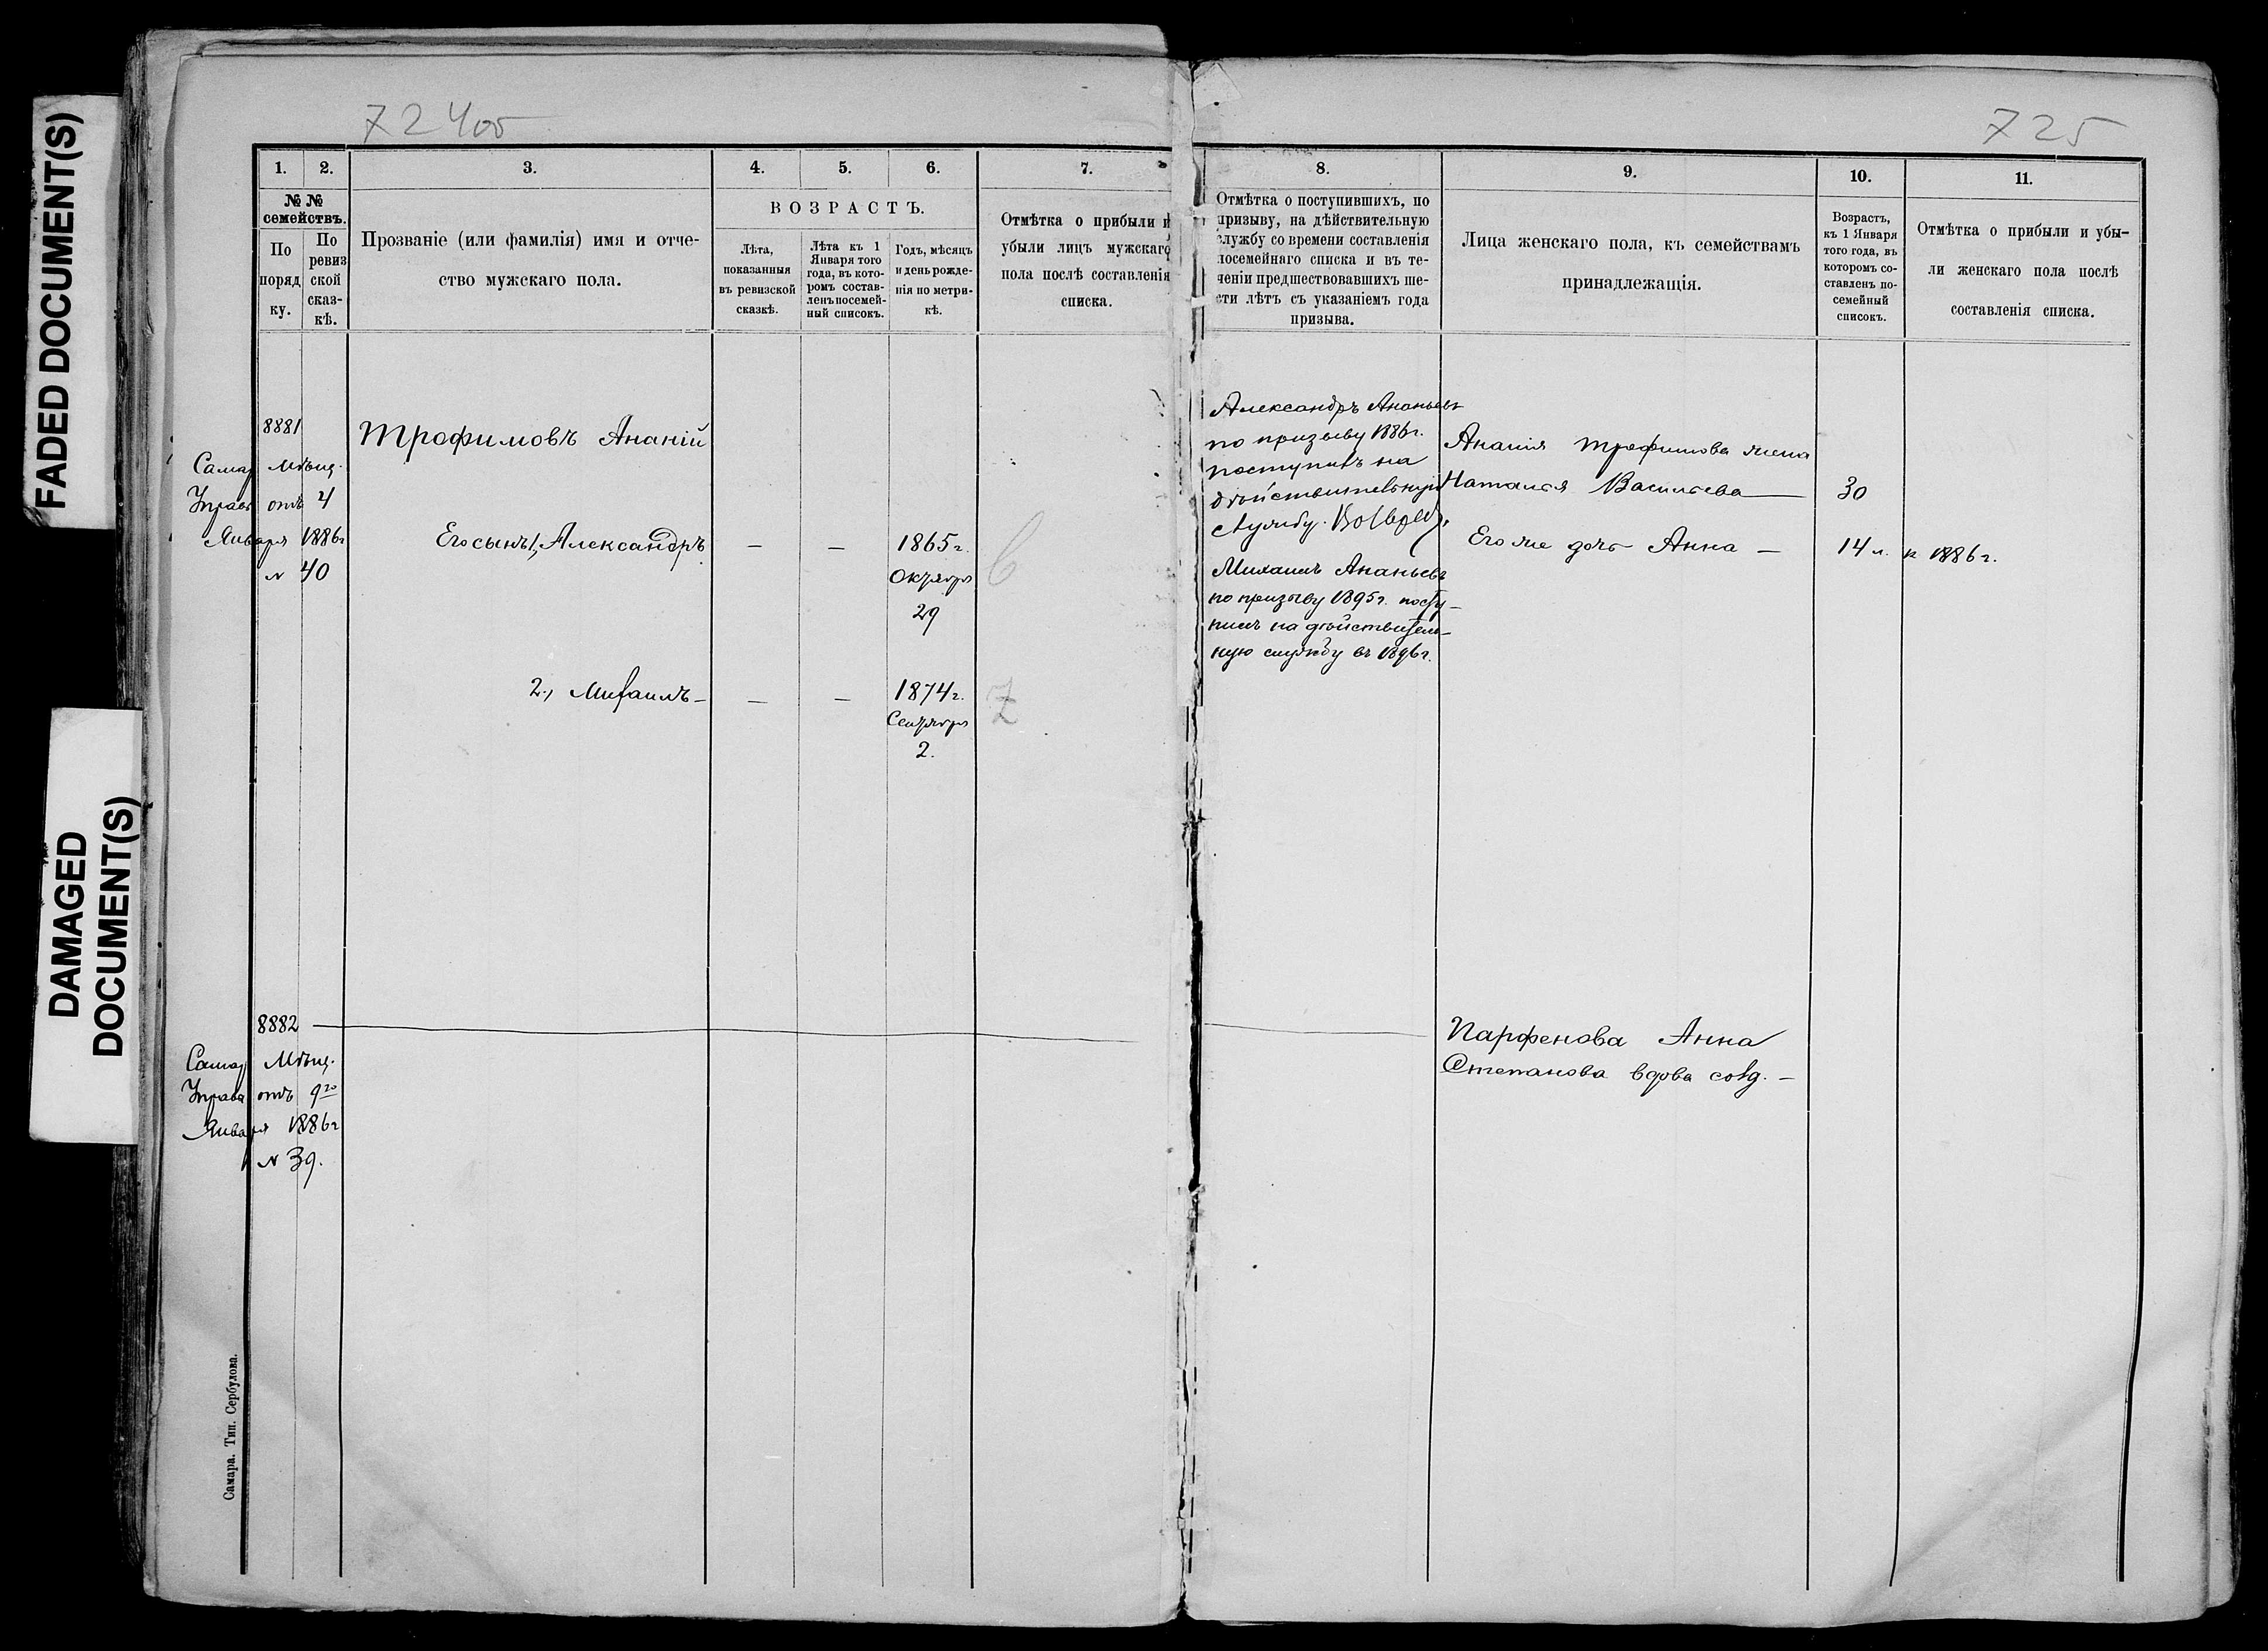 FADED DOCUMENT(S)
DAMAGED
DOCUMENT(S)
724об
1. 2. 3. 4. 5. 6. 7.
№№
семействъ.
По
поряд
ку.
По
ревиз
ской
сказ-
кѣ.
Прозваніе (или фамилія) имя и отче-
ство мужскаго пола.
ВОЗРАСТЪ.
Лѣта,
показанныя
въ ревизской
сказкѣ.
Лѣта къ 1
Января того
года, въ кото-
ромъ состав-
ленъ посемей-
ный списокъ.
Годъ, мѣсяцъ
и день рожде-
нія по метри-
кѣ.
Отмѣтка о прибыли и
убыли лицъ мужскаго
пола послѣ составленія
списка.
8881
Самар Мѣщ.
Управ отъ 4
Января 1886г
№ 40
Трофимовъ Ананій
Его сынъ 1, Александръ — — 1865г.
Октября
29
2, Михаилъ — — — 1874г.
Сентября
2.
8882
Самар Мѣщ.
Управа отъ 9го
Января 1886г
№ 39.
Самара. Тип. Сербулова.
725
8. 9. 10. 11.
Отмѣтка о поступившихъ, по
призыву, на дѣйствительную
службу со времени составленія
посемейнаго списка и въ те-
ченіи предшествовавшихъ ше-
сти лѣтъ съ указаніемъ года
призыва.
Лица женскаго пола, къ семействамъ
принадлежащія.
Возрастъ,
къ 1 Января
того года, въ
которомъ со-
ставленъ по-
семейный
списокъ.
Отмѣтка о прибыли и убы-
ли женскаго пола послѣ
составленія списка.
Александръ Ананьевъ
по призыву 1886г.
поступилъ на
дѣйствительную
службу.
Михаилъ Ананьевъ
по призыву 1895г. посту-
пилъ на дѣйствитель-
ную службу въ 1896г.
Ананія Трофимова жена
Наталья Васильева — 30
Его же дочь Анна — 14 л. к 1886г.
Парфенова Анна
Степанова вдова солд. —